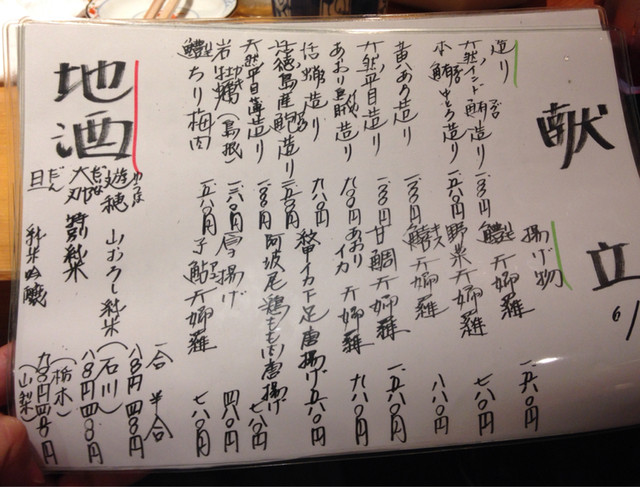 献立
6/
造り
天然インド鮪造り 一、二〇〇円
本鮪中とろ造り 一、五八〇円
黄はあら造り 一、二〇〇円
天然平目造り 一、二〇〇円
あおりいか造り 九八〇円
活蛸造り 九八〇円
徳島産鮑造り
天然平目薄造り 一、二〇〇円
岩牡蠣(島根) 一、二八〇円
鱧ちり梅肉 一、二八〇円
揚げ物
鱧天婦羅 一、二八〇円
鱚天婦羅 七八〇円
野菜天婦羅 八八〇円
甘鯛天婦羅 一、二八〇円
あおりイカ天婦羅 九八〇円
甲イカ下足唐揚げ 五八〇円
阿波尾鶏もも肉唐揚げ 七八〇円
厚揚げ 四八〇円
子鮎天婦羅 七八〇円
地酒
一合 半合
遊穂 山おろし純米 (石川) 八八〇円 四八〇円
大那 特別純米 (栃木) 八八〇円 四八〇円
旦 純米吟醸 (山梨)